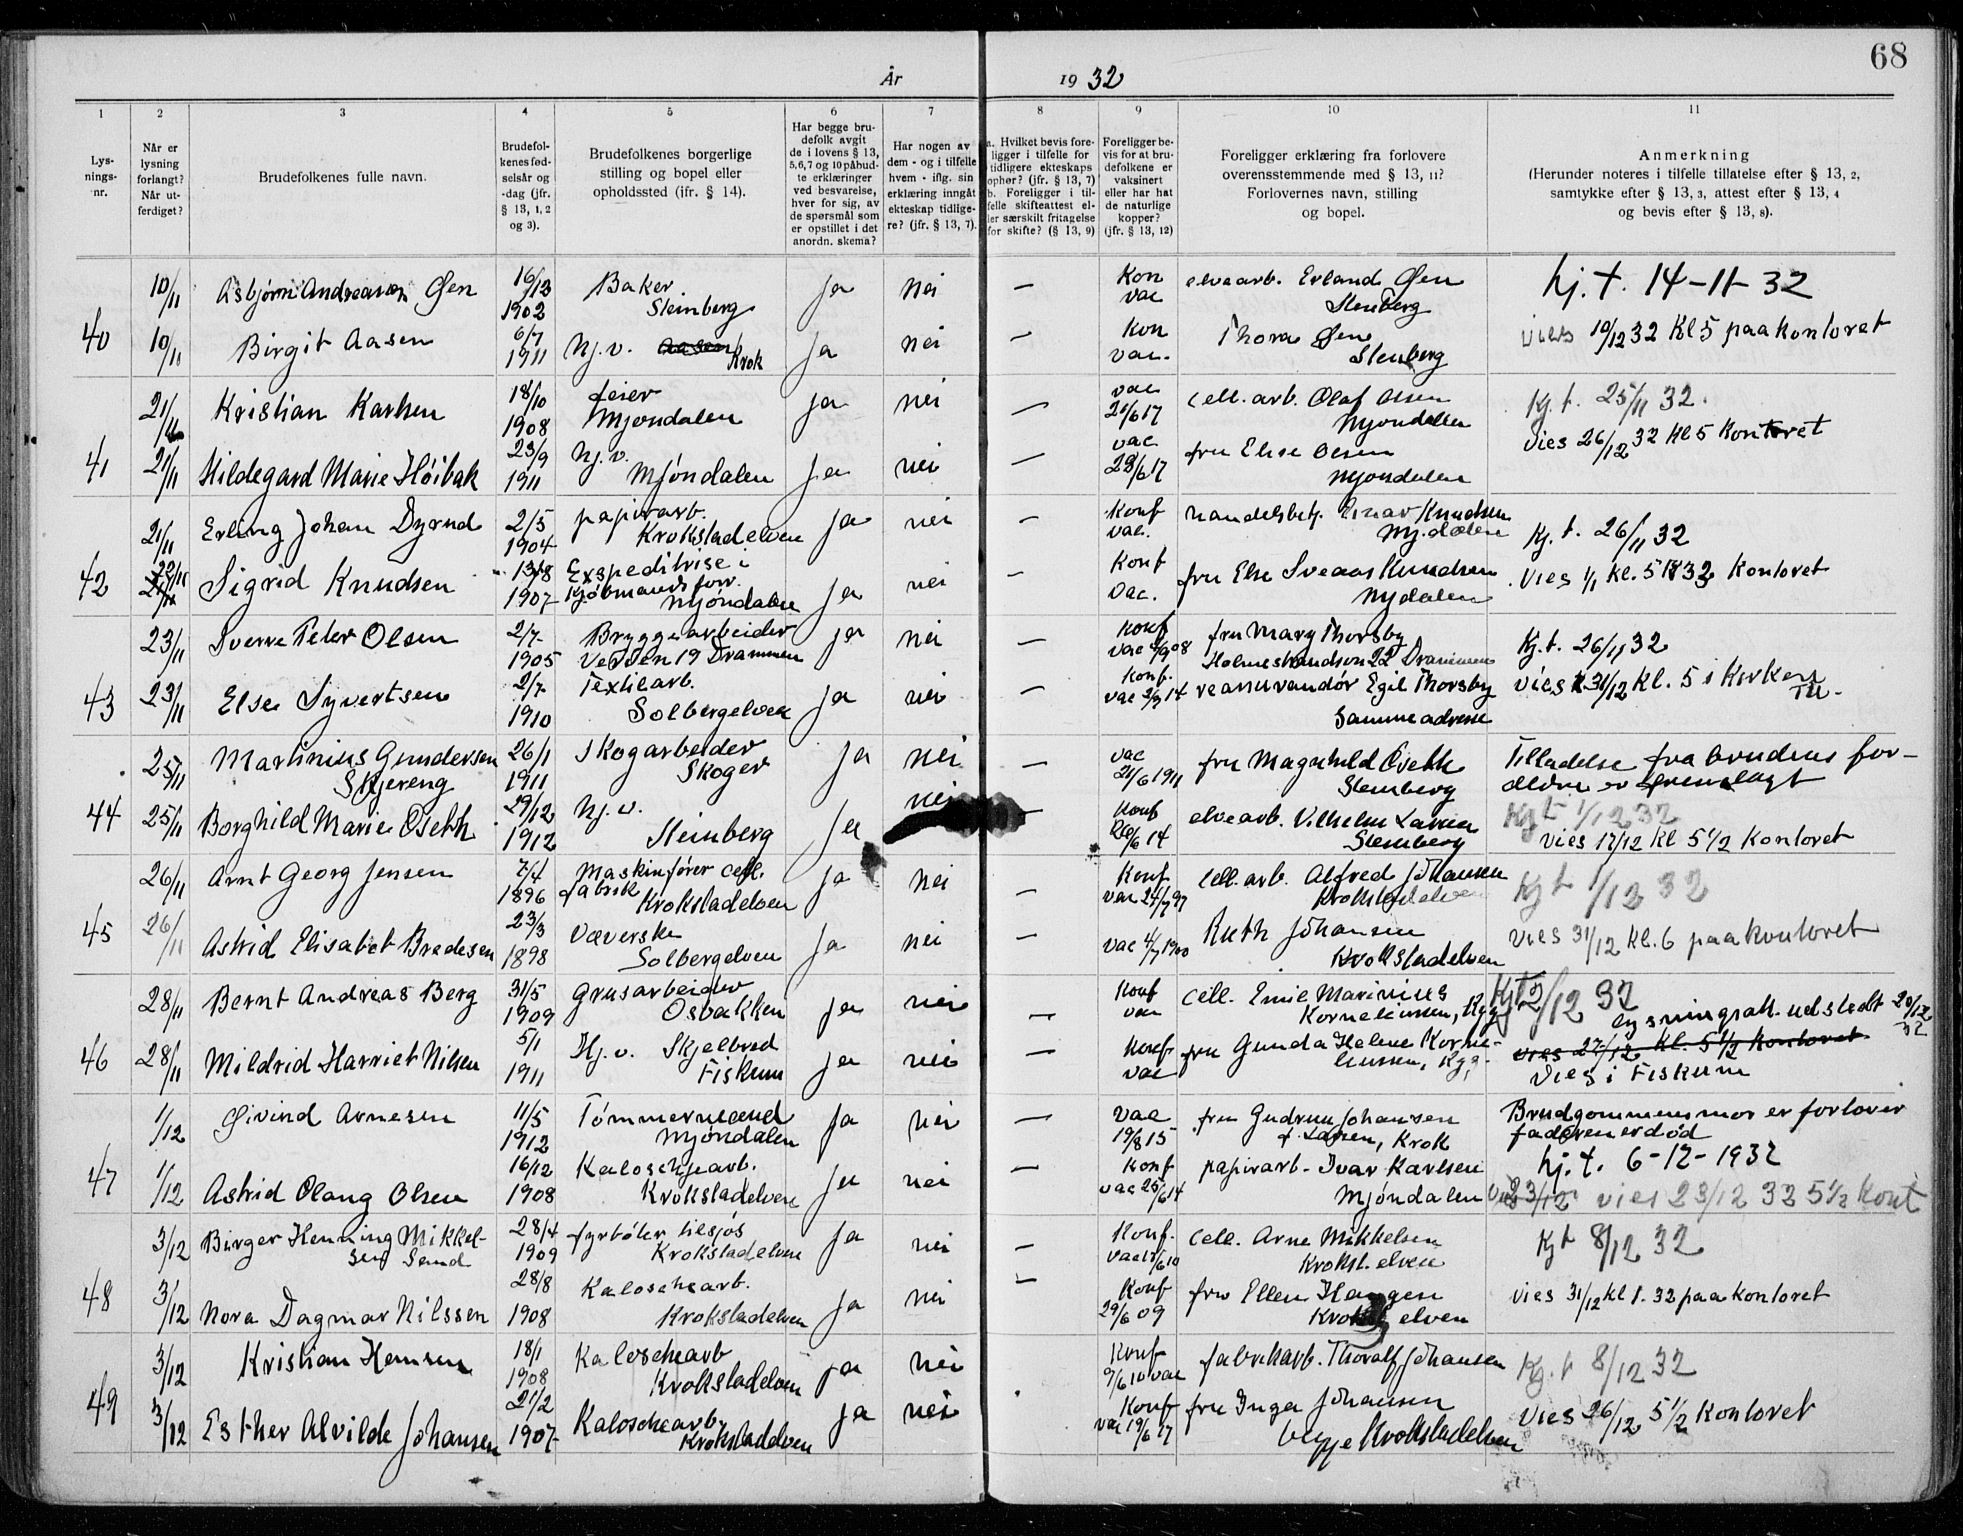 68
År 19 32
1 2 3 4 5 6 7 8 9 10 11
Lys-
nings-
nr.
Når er
lysning
forlangt?
Når ut-
ferdiget?
Brudefolkenes fulle navn.
Brudefol-
kenes fød-
selsår og
-dag (jfr.
§ 13, 1, 2
og 3).
Brudefolkenes borgerlige
stilling og bopel eller
opholdssted (ifr. § 14).
Har begge bru-
defolk avgit
de i lovens § 13,
5,6,7 og 10 påbud-
te erklæringer
ved besvarelse,
hver for sig, av
de spørsmål som
er opstillet i det
anordn. skema?
Har nogen av
dem - og i tilfelle
hvem - iflg. sin
erklæring inngått
ekteskap tidlige-
re? (jfr. § 13, 7).
a. Hvilket bevis fore-
ligger i tilfelle for
tidligere ekteskaps
ophør? (jfr. § 13, 7)
b. Foreligger i til-
felle skifteattest el-
ler særskilt fritagelse
for skifte? (§ 13, 9)
Foreligger be-
vis for at bru-
defolkene er
vaksinert
eller har hat
de naturlige
kopper?
(jfr. § 13, 12)
Foreligger erklæring fra forlovere
overensstemmende med § 13, 11?
Forlovernes navn, stilling
og bopel.
Anmerkning
(Herunder noteres i tilfelle tillatelse efter § 13, 2,
samtykke efter § 13, 3, attest efter § 13, 4
og bevis efter § 13, 8).
40
10/11 Asbjørn Andreassen Øen 16/12 1902 Baker Steinberg Ja nei — Kon vac elvearb. Erland Øen Stenberg hj. t. 14-11-32
10/11 Birgit Aasen 6/7 1911 hj. v. Aasen Krok Ja nei — Kon vac. Thora Øen Stenberg vies 10/12 32 Kl 5 paa kontoret
41
21/11 Kristian Karlsen 18/10 1908 feier Mjøndalen Ja nei — vac 21/6 17 cell. arb. Olaf Olsen Mjøndalen Kj. t. 25/11 32.
21/11 Hildegard Marie Høibak 23/9 1911 hj. v. Mjøndalen Ja nei — vac 28/6 17 fru Else Olsen Mjøndalen Vies 26/12 32 kl 5 kontoret
42
21/11 Erling Johan Dyrud 2/5 1904 papirarb. Krokstadelven Ja nei — Konf vac. handelsbetj. Einar Knudsen Mj.dalen Kj. t. 26/11 32
22/11 Sigrid Knudsen 13/8 1907 Expeditrise i Kjøbmandsforr. Mjøndalen Ja nei — Konf Vac. fru Else Knudsen Mjdalen Vies 1/1 kl. 5 Kontoret
43
23/11 Sverre Peter Olsen 2/7 1905 Bryggearbeider Verven 19 Drammen Ja nei — Konf vac fru Mary Thorsby Holmestrandsvn 22 Drammen Kj. t. 26/11 32
23/11 Else Syvertsen 2/7 1910 Textilarb. Solbergelven Ja nei — Konf. vac 2/9 14 Egil Thorsby Samme adresse vies 31/12 kl. 5 i Kirken
44
25/11 Martinius Gundersen Skjereng 26/1 1911 Skogarbeider Skoger Ja nei — vac 21/6 1911 fru Magnhild Oseth Steinberg Tilladelse fra brudens for-
ældre er fremlagt
25/11 Borghild Marie Oseth 29/12 1912 hj. v. Steinberg Ja nei — Konf 20/6 14 elvearb. Vilhelm Larsen Steinberg Kj t 1/12 32
Vies 17/12 kl 5 1/2 Kontoret
45
26/11 Arnt Georg Jensen 7/4 1896 Maskinfører cell. fabrik Krokstadelven Ja nei — Konf vac 24/7 97 cell. arb. Alfred Johansen Krokstadelven Kj t 1/12 32
26/11 Astrid Elisabet Bredesen 23/3 1898 Væverske Solbergelven Ja nei — vac 4/7 1900 Ruth Johansen Krokstadelven Vies 31/12 kl. 6 paa kontoret
46
28/11 Bernt Andreas Berg 31/5 1909 Grusarbeider Osbakken Ja nei — Konf vac cell. Emil Marinius Korneliussen, Kgg Kj t 2/12 32
lysningsatt. udstedt 20/12 32
28/11 Mildrid Harriet Nilsen 5/1 1911 Hj. v. Skjelbred Fiskum Ja nei — Konf vac fru Gunda Helene Korne-
liussen, Kgg. vies 27/12 kl. 5 1/2 kontoret
Vies i Fiskum
47
1/12 Øivind Arnesen 11/5 1912 Tømmermand Mjøndalen Ja nei — vac 19/8 15 fru Gudrun Johansen f. Larsen, Krok Brudgommens mor er forlover
faderen er død
1/12 Astrid Olaug Olsen 16/12 1908 Kaloschearb. Krokstadelven Ja nei — Konf vac 25/6 14 papirarb. Ivar Karlsen Mjøndalen hj. t. 6-12-1932
Vies 23/12 vies 23/12 32 5 1/2 kont
48
3/12 Birger Henning Mikkel-
sen Sand 28/4 1909 fyrbøter tilsjøs Krokstadelven Ja nei — Konf. vac 17/6 10 cell. Arne Mikkelsen Krokst. elven Kj t 8/12 32
3/12 Nora Dagmar Nilssen 28/8 1908 Kaloschearb. Krokstadelven Ja nei — Konf 29/6 09 fru Ellen Haugen Krokst elven vies 31/12 kl 1. 32 paa kontoret
49
3/12 Kristian Hemsen 18/1 1908 Kaloschearb Krokstadelven Ja nei Konf 9/6 10 vac fabrikarb. Thoralf Johansen Kj. t 8/12 32
3/12 Esther Alvilde Johansen 21/2 1907 Kaloschearb. Krokstadelven Ja nei Konf vac 19/6 17 fru Inga Johansen begge Krokstadelven Vies 26/12 5 1/2 Kontoret